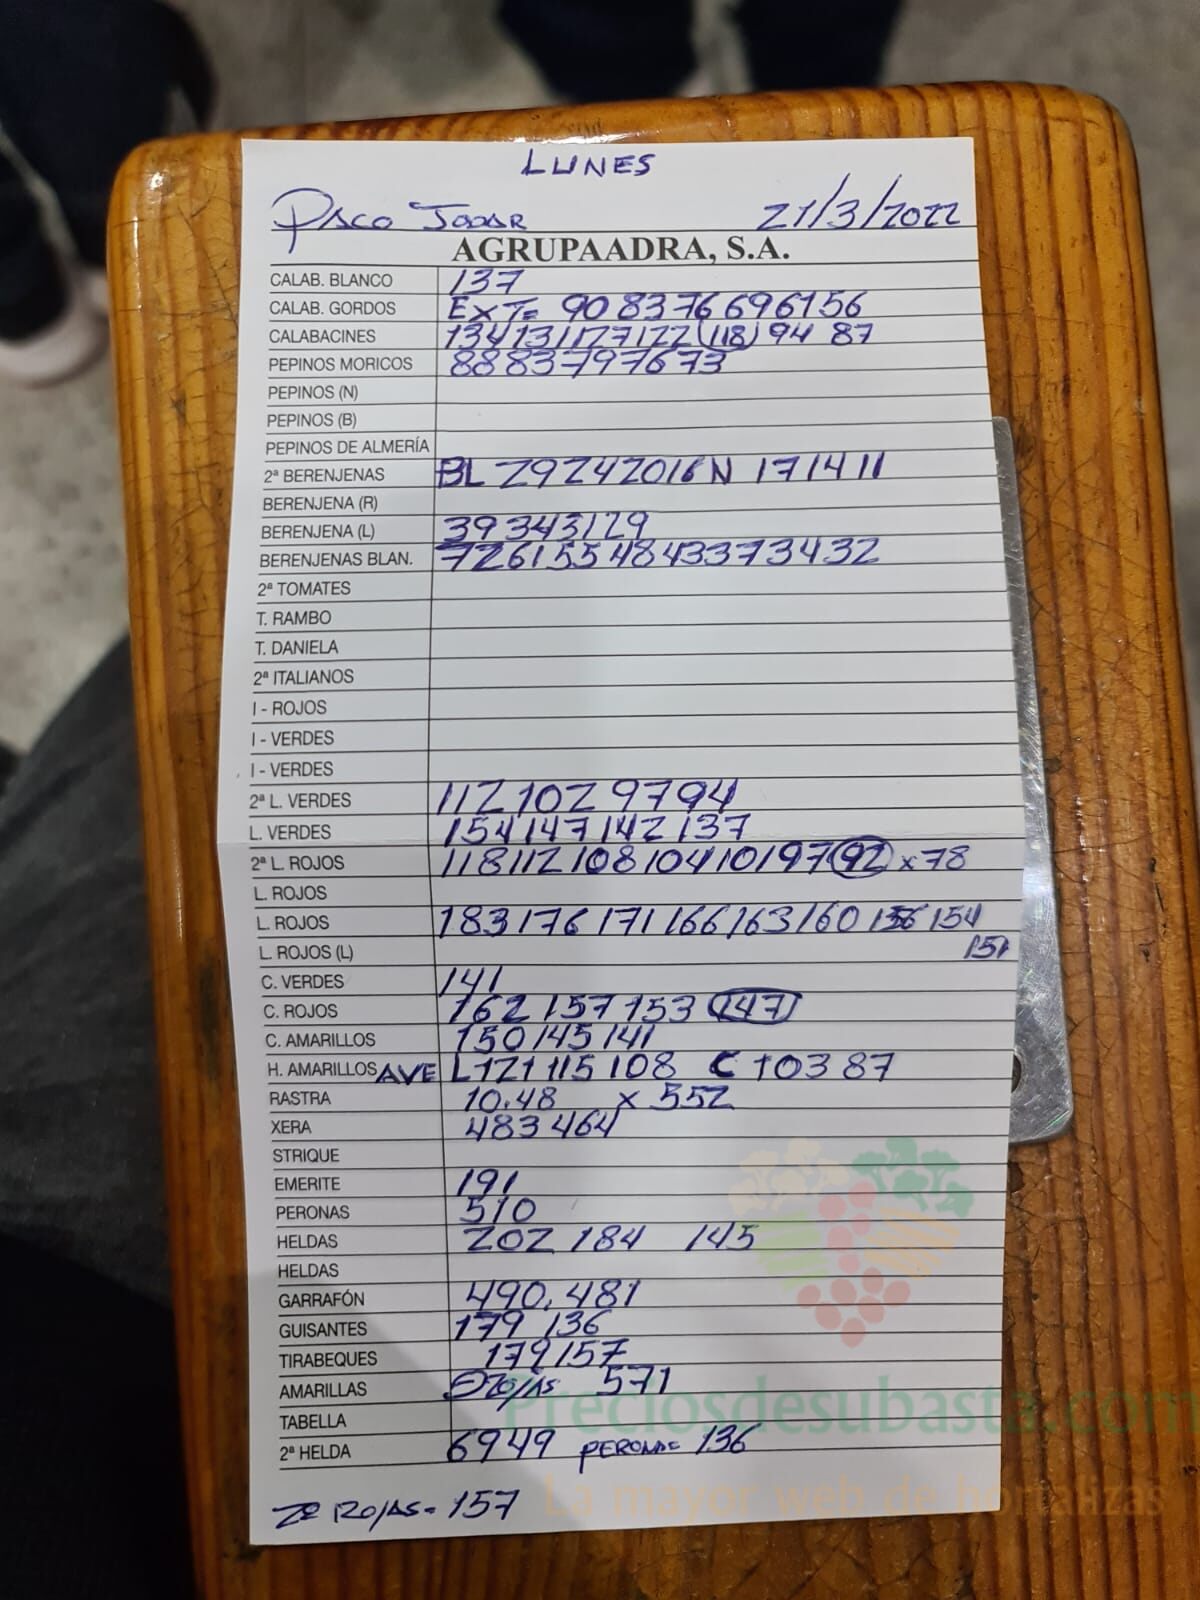 LUNES
PACO JODAR 21/3/2022
AGRUPAADRA, S.A.
CALAB. BLANCO 137
CALAB. GORDOS EXT= 90 83 76 69 61 56
CALABACINES 134 131 127 122 (118) 94 87
PEPINOS MORICOS 88 83 79 76 73
PEPINOS (N)
PEPINOS (B)
PEPINOS DE ALMERÍA
2ª BERENJENAS BL 29 24 20 16 N 17 14 11
BERENJENA (R)
BERENJENA (L) 39 34 31 29
BERENJENAS BLAN. 72 61 55 48 43 37 34 32
2ª TOMATES
T. RAMBO
T. DANIELA
2ª ITALIANOS
I - ROJOS
I - VERDES
I - VERDES
2ª L. VERDES 112 102 97 94
L. VERDES 154 147 142 137
2ª L. ROJOS 118 112 108 104 101 97 92 x 78
L. ROJOS
L. ROJOS 183 176 171 166 163 160 156 154
L. ROJOS (L) 151
C. VERDES 141
C. ROJOS 162 157 153 147
C. AMARILLOS 150 145 141
H. AMARILLOS AVE L 121 115 108 C 103 87
RASTRA 10.48 x 552
XERA 483 464
STRIQUE
EMERITE 191
PERONAS 510
HELDAS 202 184 145
HELDAS
GARRAFÓN 490. 481
GUISANTES 179 136
TIRABEQUES 179 157
AMARILLAS 571
TABELLA
2ª HELDA 69 49 PERONA= 136
2ª ROJAS= 157
Preciosdesubasta.com
La mayor web de hortalizas